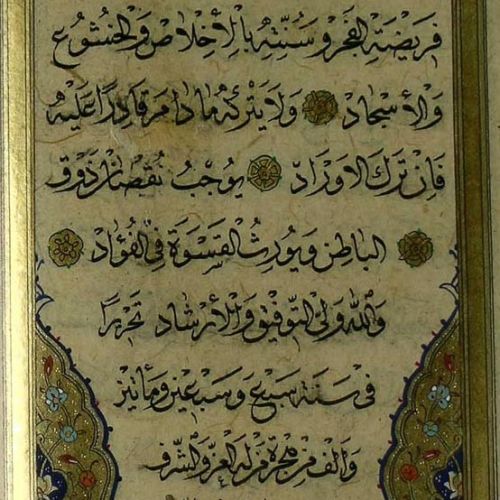 فريضة الفجر وسنته بالأخلاص والخشوع
والأسجاد ولا يتركه مادام مرقادرا عليه
فان ترك الاوراد يوجب نقصان ذوق
الباطن ويورث القسوة في الفؤاد
والله ولي التوفيق والأرشاد تحريرا
في سنة سبع وسبعين ومأتين
والف من هجرة من له العز والشرف